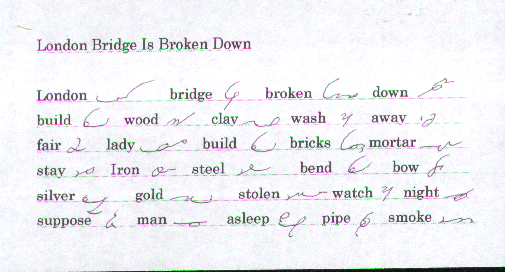 London Bridge Is Broken Down
London bridge broken down
build wood clay wash away
fair lady build bricks mortar
stay Iron steel bend bow
silver gold stolen watch night
suppose man asleep pipe smoke